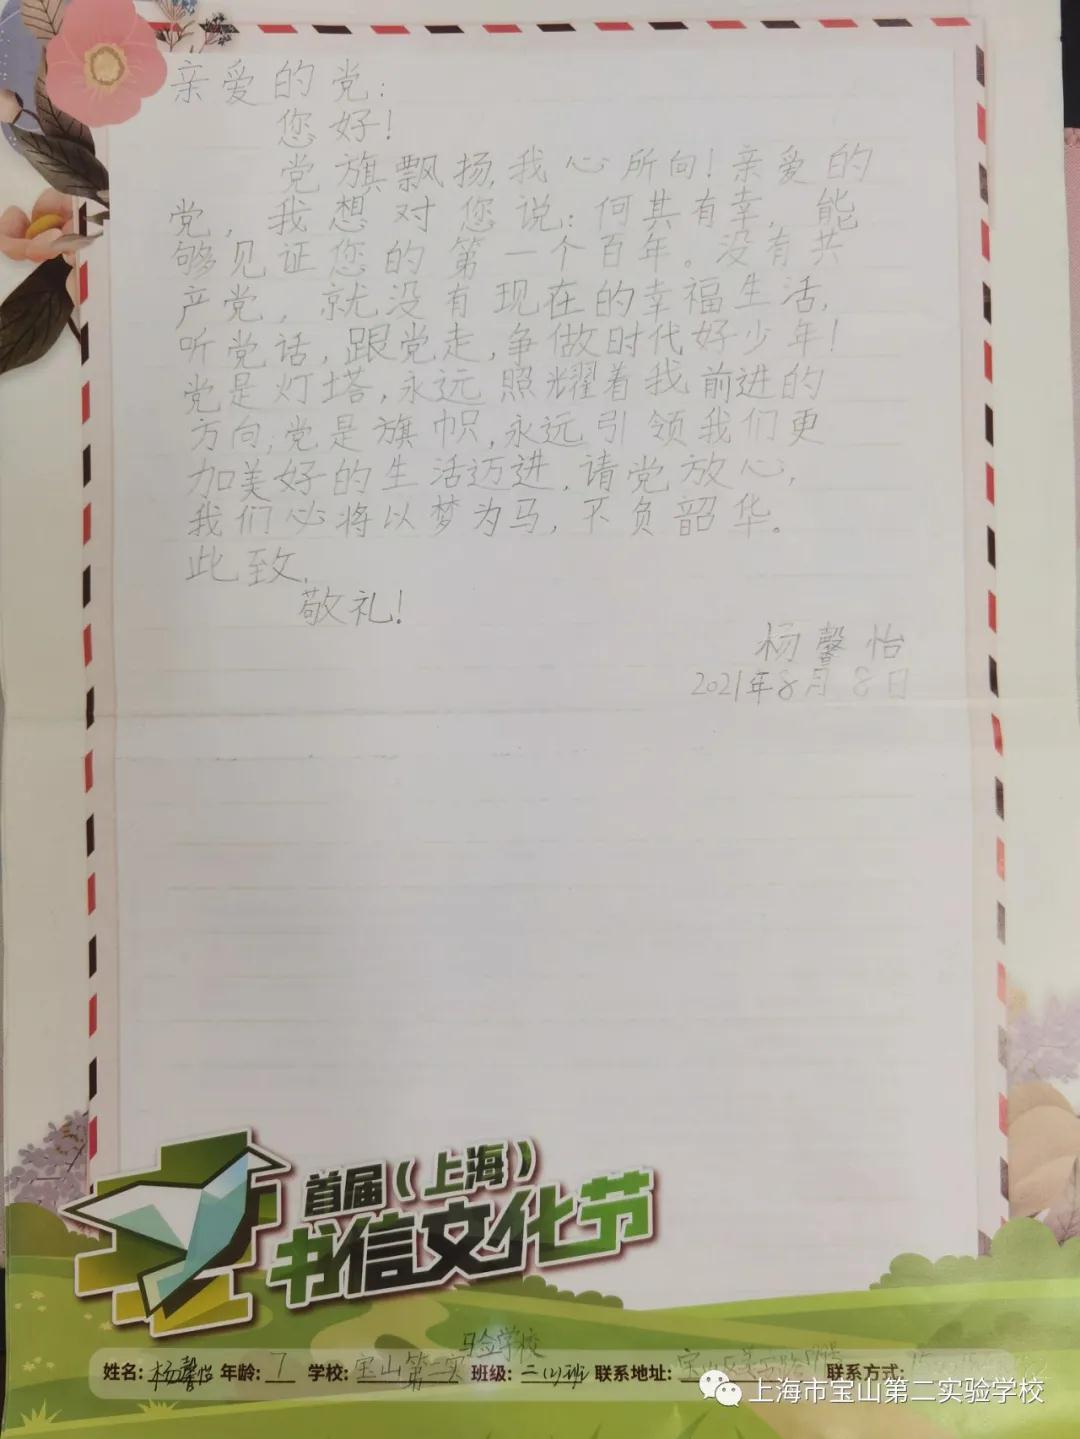 亲爱的党:
您好!
党旗飘扬,我心所向!亲爱的
党,我想对您说:何其有幸,能
够见证您的第一个百年。没有共
产党,就没有现在的幸福生活,
听党话,跟党走,争做时代好少年!
党是灯塔,永远照耀着我前进的
方向;党是旗帜,永远引领我们更
加美好的生活迈进,请党放心,
我们必将以梦为马,不负韶华。
此致,
敬礼!
杨馨怡
2021年8月8日
首届(上海)
书信文化节
验学校
姓名:杨馨怡 年龄:7 学校:宝山第二实 班级:二(1)班 联系地址:宝山区 联系方式:
上海市宝山第二实验学校